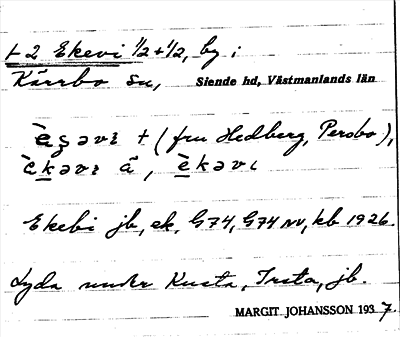 + 2 Ekevi 1/2 + 1/2, by i
Kärrbo sn, Siende hd, Västmanlands län
+ (fru Hedberg, Persbo),
Ekebi jb, ek, G74, G74 NV, kb 1926.
Lyda under Kusta, Irsta, jb.
MARGIT JOHANSSON 1937.